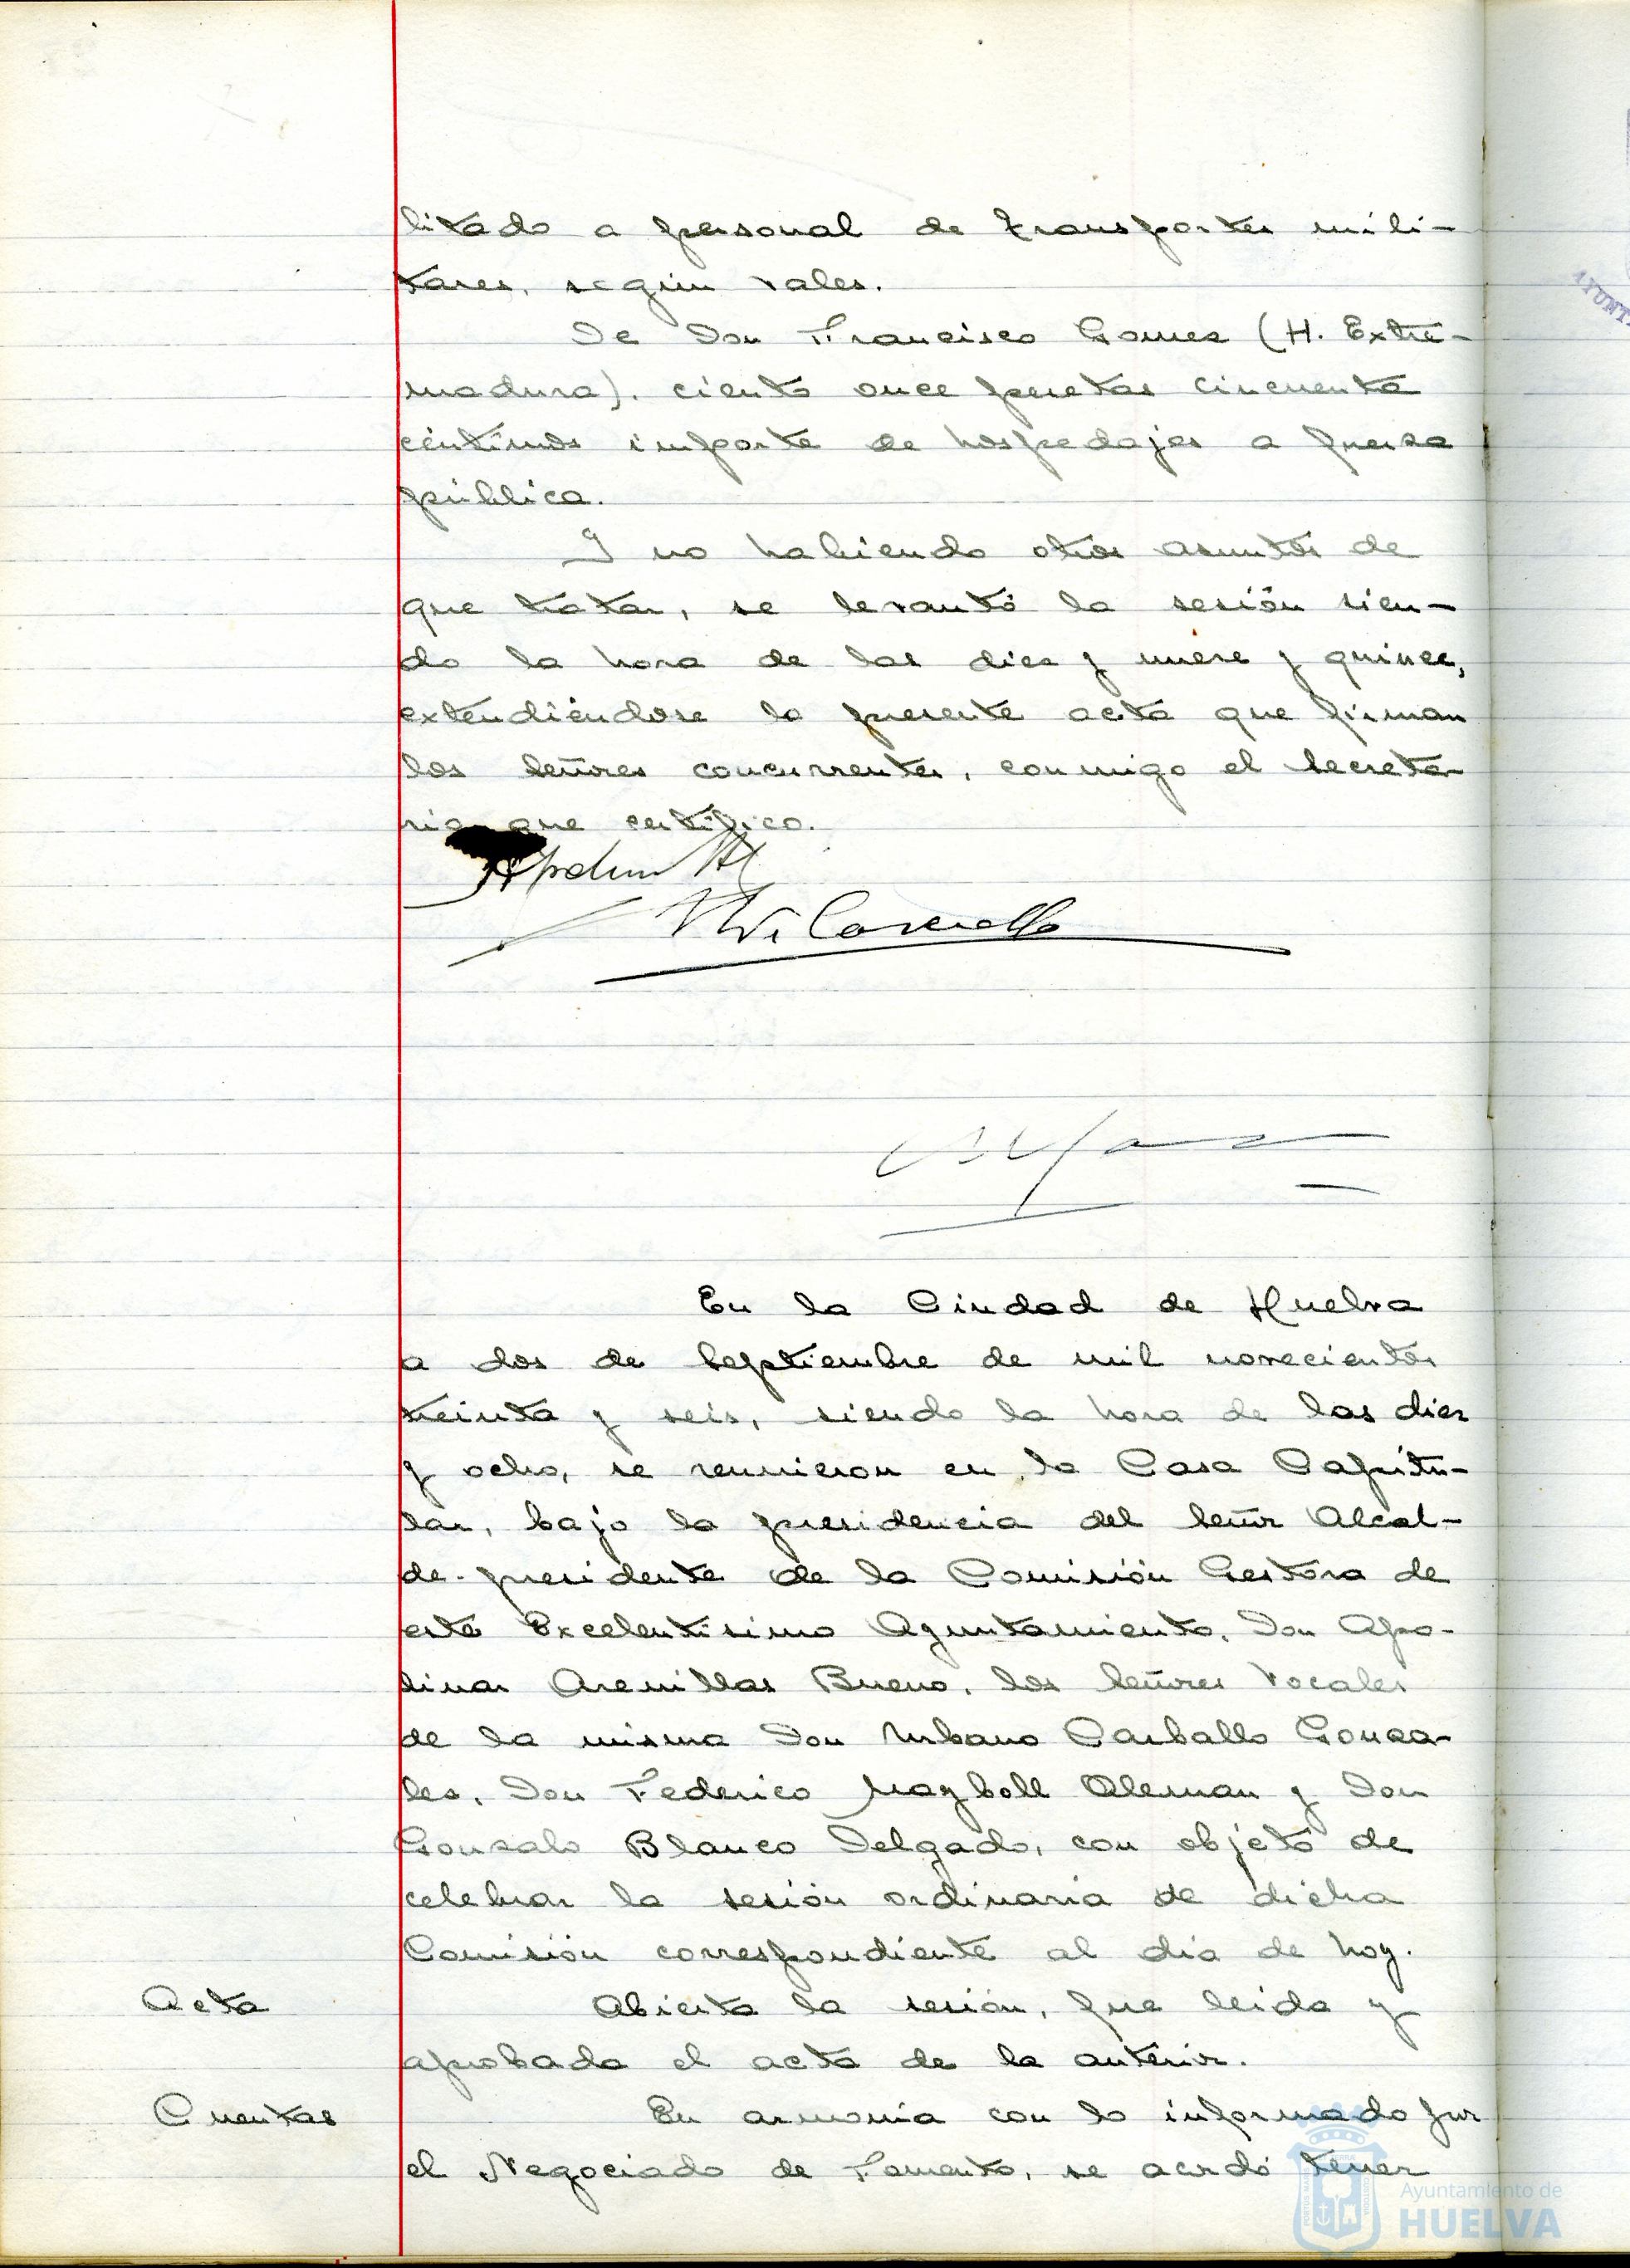 litado a personal de transportes mili-
tares, según vales.
De Don Francisco Gomez (H. Extre-
madura), ciento once pesetas cincuenta
céntimos importe de hospedajes a fuerza
pública.
Y no habiendo otros asuntos de
que tratar, se levantó la sesión sien-
do la hora de las diez y nueve y quince,
extendiéndose la presente acta que firman
los señores concurrentes, conmigo el Secreta-
rio que certifico.
En la Ciudad de Huelva
a dos de Septiembre de mil novecientos
treinta y seis, siendo la hora de las diez
y ocho, se reunieron en la Casa Capitu-
lar, bajo la presidencia del Señor Alcal-
de-presidente de la Comisión Gestora de
este Excelentísimo Ayuntamiento, Don Apo-
linar Arenillas Bueno, los Señores Vocales
de la misma Don Urbano Carballo Gonza-
lez, Don Federico Mayboll Aleman y Don
Gonzalo Blanco Delgado, con objeto de
celebrar la sesión ordinaria de dicha
Comisión correspondiente al día de hoy.
Acta
Abierta la sesión, fue leida y
aprobada el acta de la anterior.
Cuentas
En armonía con lo informado por
el Negociado de Fomento, se acordó tener
Ayuntamiento de
HUELVA